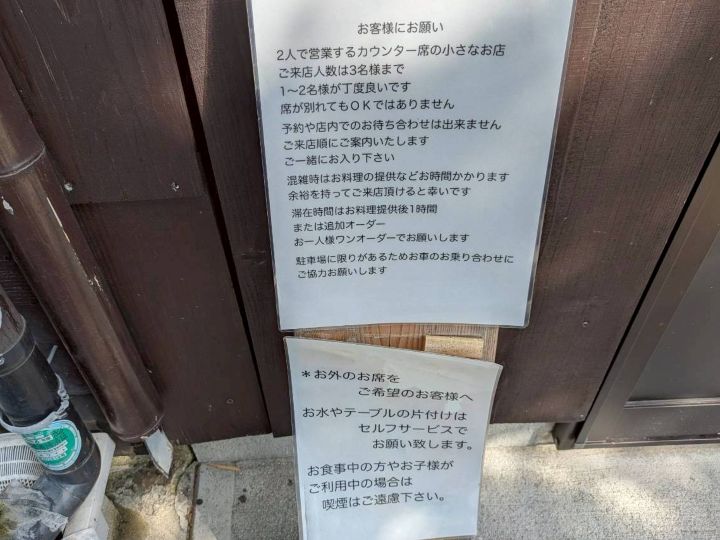 お客様にお願い
2人で営業するカウンター席の小さなお店
ご来店人数は3名様まで
1～2名様が丁度良いです
席が別れてもOKではありません
予約や店内でのお待ち合わせは出来ません
ご来店順にご案内いたします
ご一緒にお入り下さい
混雑時はお料理の提供などお時間かかります
余裕を持ってご来店頂けると幸いです
滞在時間はお料理提供後1時間
または追加オーダー
お一人様ワンオーダーでお願いします
駐車場に限りがあるためお車のお乗り合わせに
ご協力お願いします
＊お外のお席を
ご希望のお客様へ
お水やテーブルの片付けは
セルフサービスで
お願い致します。
お食事中の方やお子様が
ご利用中の場合は
喫煙はご遠慮下さい。